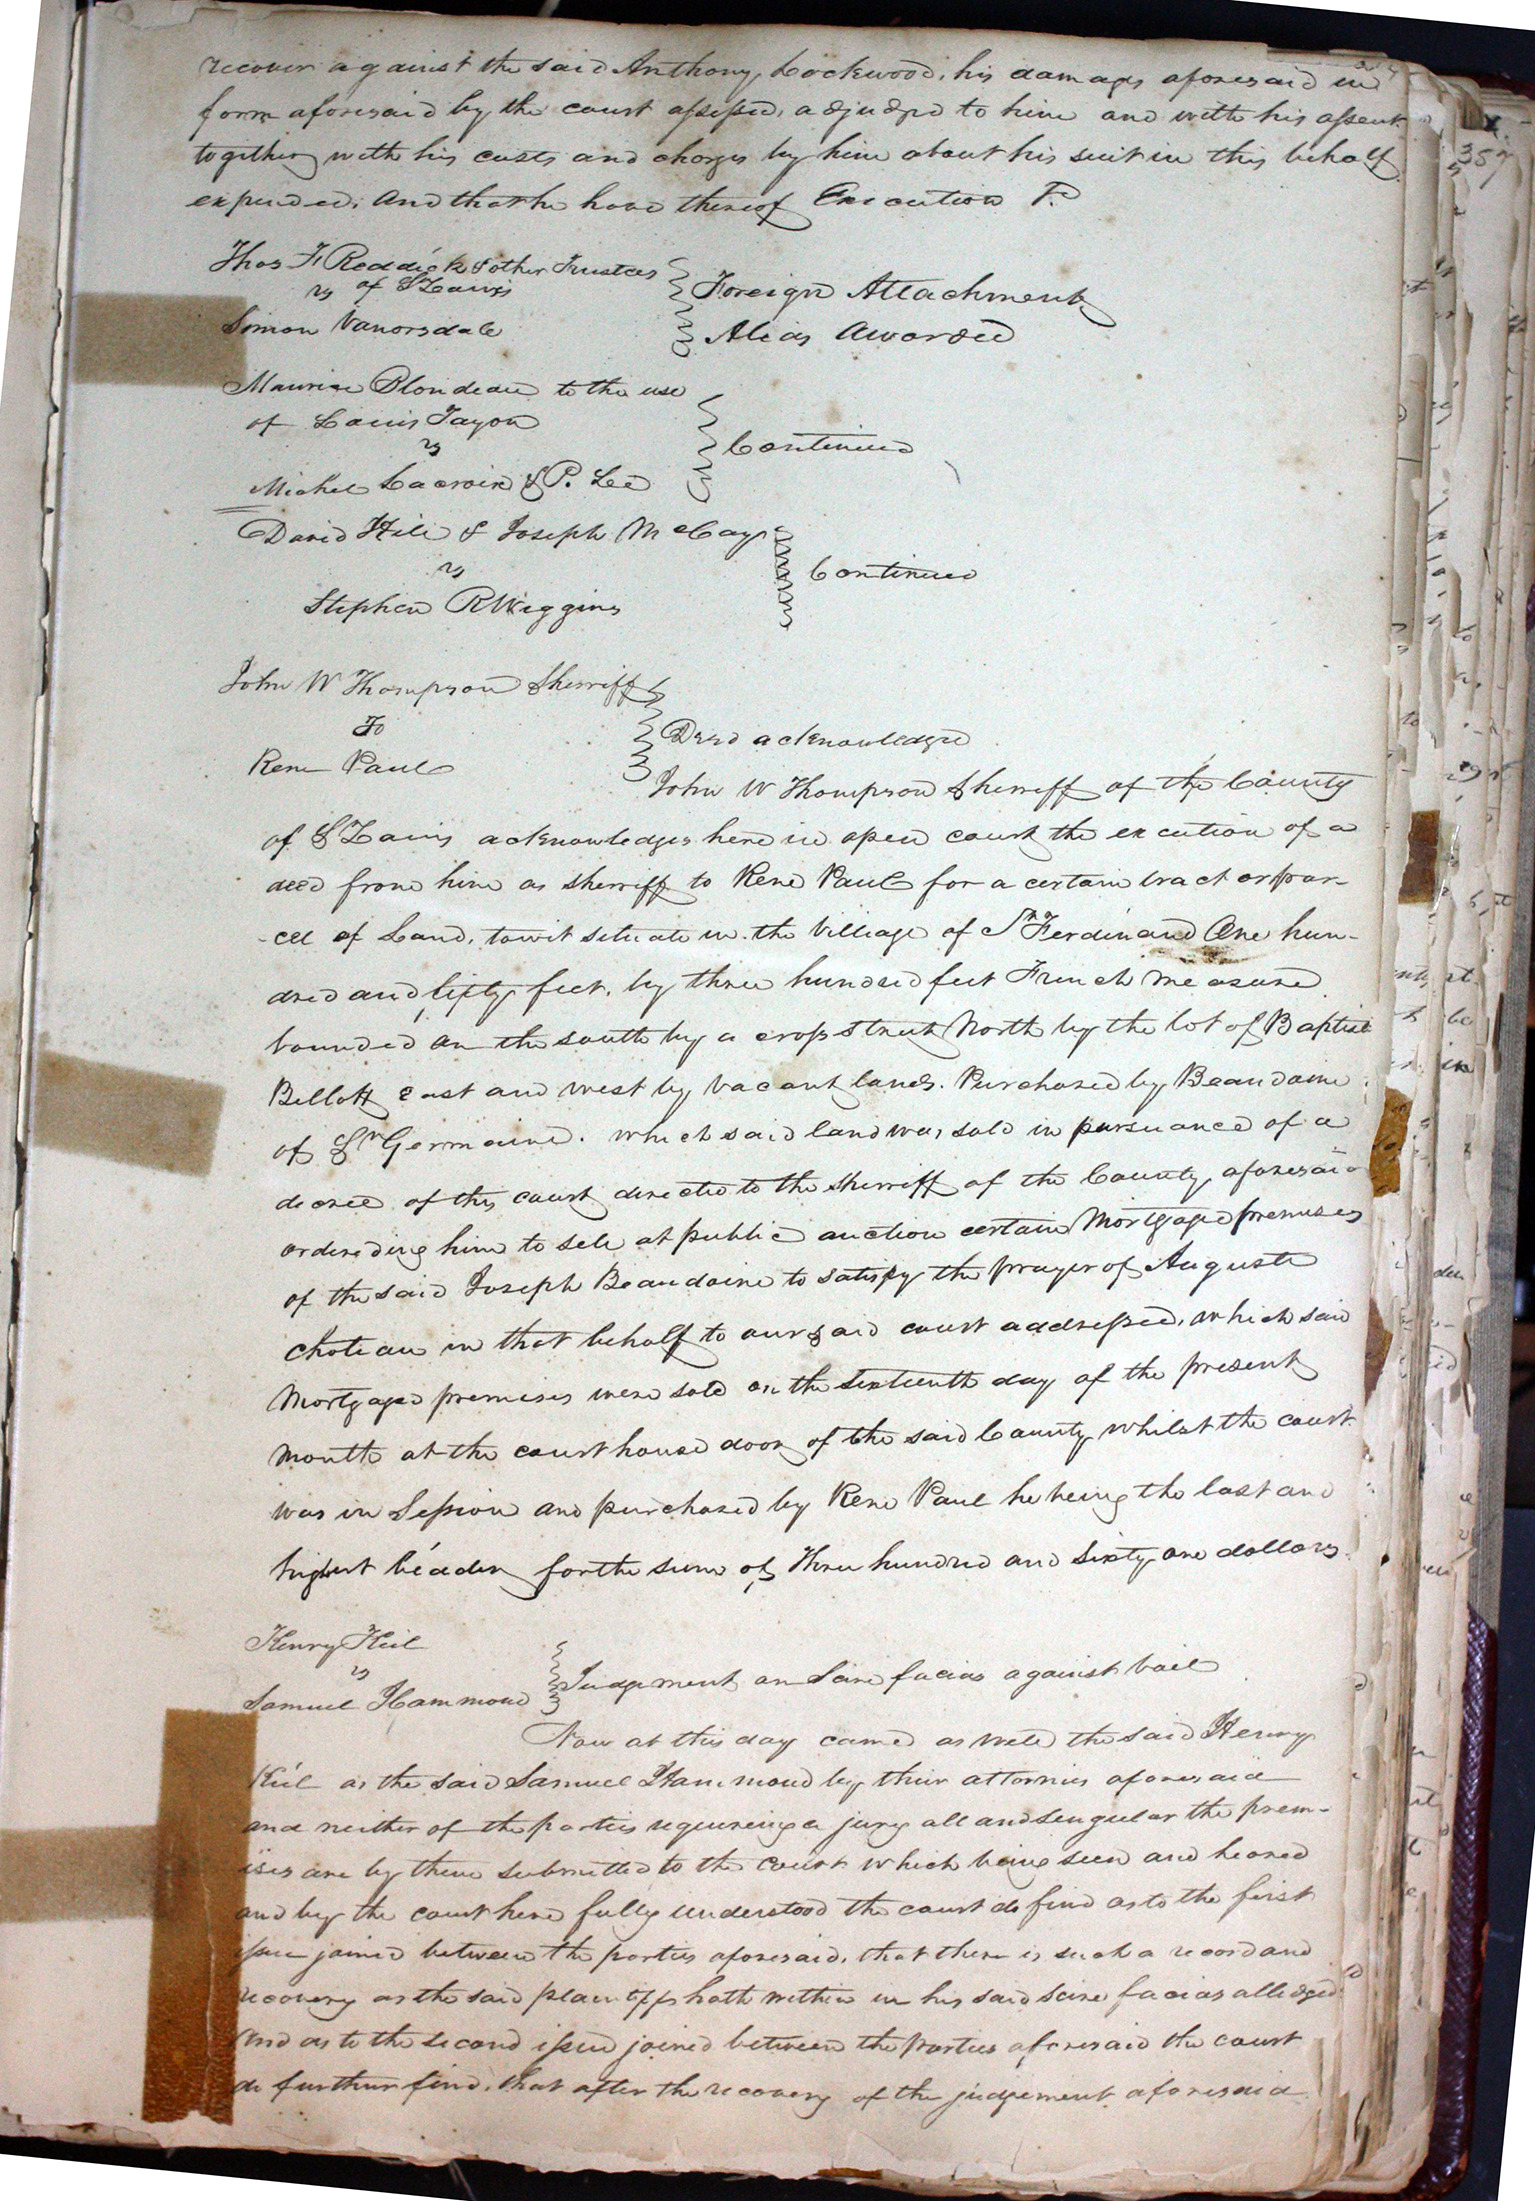 recover against the said Anthony Lockwood, his damages aforesaid in
form aforesaid by the court assessed, adjudged to him and with his assent
together with his costs and charges by him about his suit in this behalf
expended, And that he have thereof Execution &c
357
Thos F Reddick & other Trustees
of St Louis
vs
Simon Vanorsdale
Foreign Attachment
Alias Awarded
Maurice Blondeau to the use
of Louis Tayon
vs
Michel Lacroix & P. Lee
Continued
David Hill & Joseph McCay
vs
Stephen R Wiggins
Continued
John W Thompson Sherriff
To
Rene Paul
Deed acknowledged
John W Thompson Sherriff of the County
of St Louis acknowledges here in open court the excution of a
deed from him as sherriff to Rene Paul for a certain tract or par-
-cel of Land, towit situate in the Village of St Ferdinand One hun-
dred and fifty feet, by three hundred feet French measure
bounded on the south by a cross street North by the lot of Baptist
Bellott east and west by vacant lands. Purchased by Beaudoine
of St Germaine. which said land was sold in pursuance of a
decree of this court directed to the sherriff of the County aforesaid
ordereding him to sell at public auction certain Mortgaged premises
of the said Joseph Beaudoine to satisfy the prayer of Auguste
Choteau in that behalf to our said court addressed, which said
Mortgaged premises were sold on the sixteenth day of the present
month at the court house door of the said County whilst the court
was in Session and purchased by Rene Paul he being the last and
highest bidder for the sum of Three hundred and sixty one dollars.
Henry Keil
vs
Samuel Hammond
Judgement on Scire facias against bail
Now at this day came as well the said Henry
Keil as the said Samuel Hammond by their attornies aforesaid
and neither of the parties requireing a jury all and singular the prem-
ises are by them submitted to the court which being seen and heared
and by the court here fully understood the court do find as to the first
issue joined between the parties aforesaid, that there is such a record and
recovery as the said plaintiff hath within in his said scire facias alledged
And as to the second issue joined between the parties aforesaid the court
do further find, that after the recovery of the judgement aforesaid